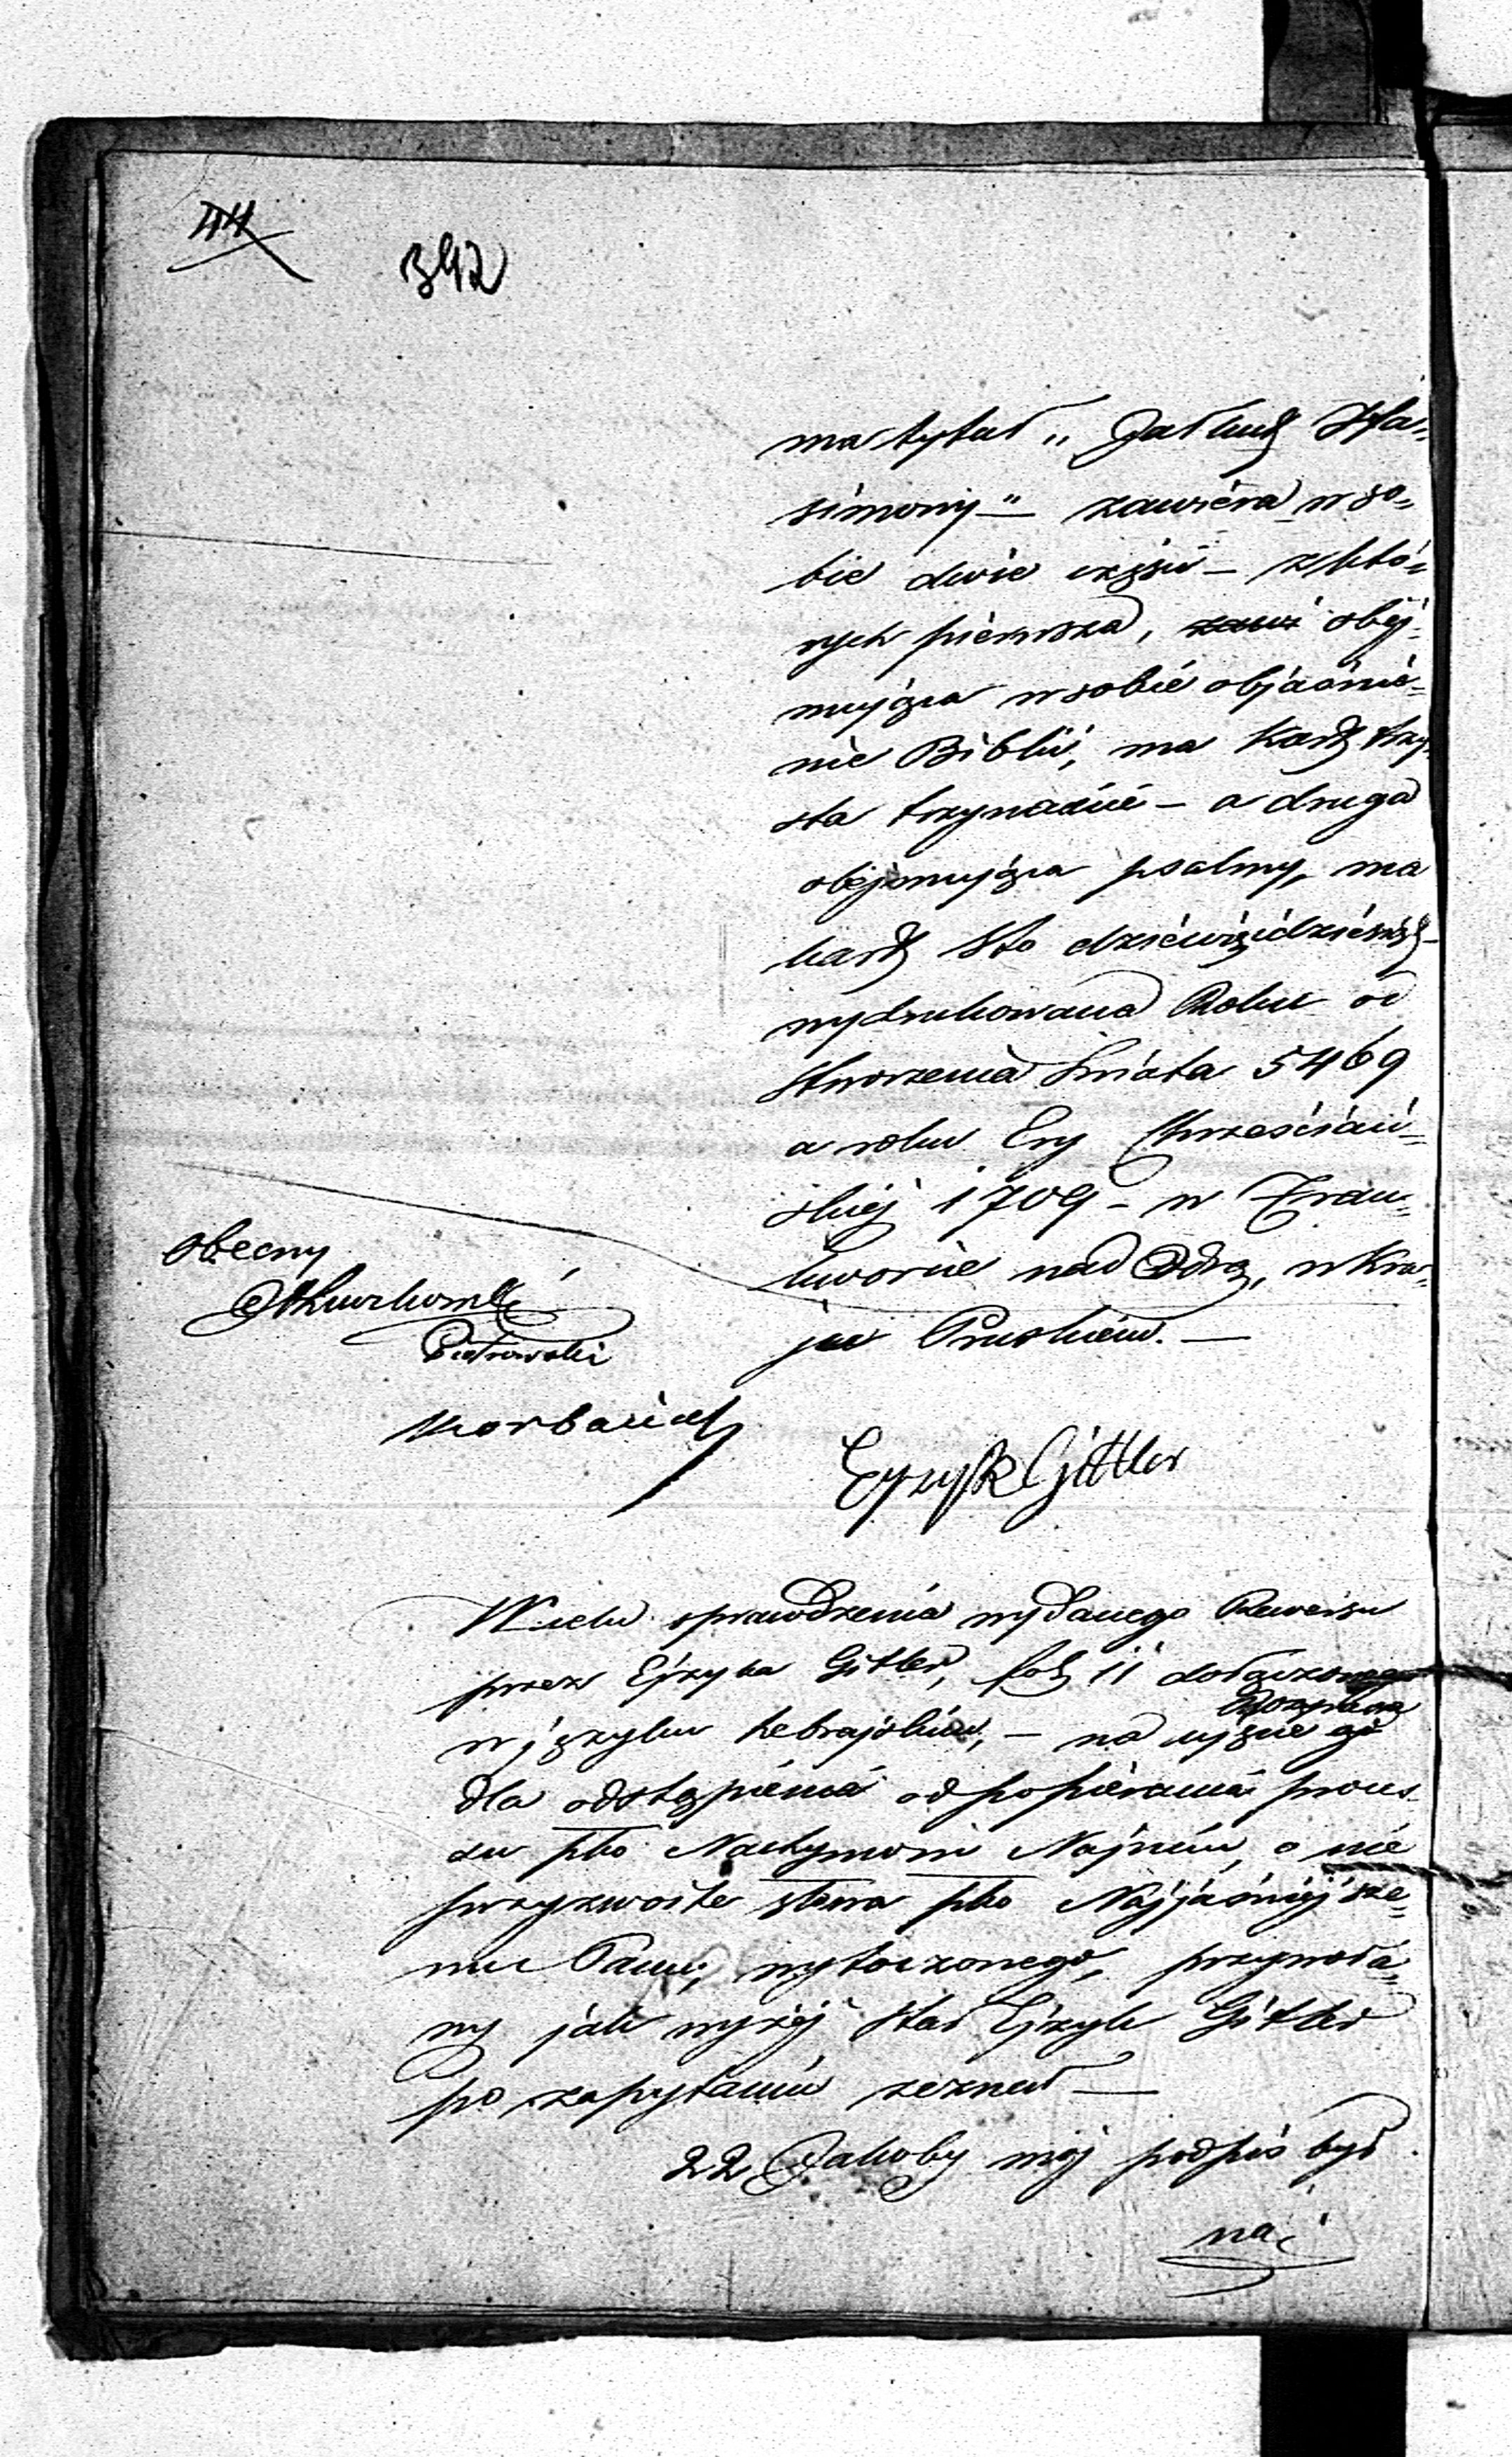 44
342
ma tytuł „Jałkuf Sza-
simony" — zawiéra w so-
bie dwie częsci — z któ-
rych pierwsza, obéj-
mująca w sobie objaśnié-
nie Biblii, ma kart trzy-
sta trzynaście — a druga
obejmująca psalmy, ma
kart sto dziéwięćdziésiąt
wydrukowana Roku od
stworzenia świata 5469
a roku Ery Chrześciań-
skiéj 1709 — w Fran-
kworcie nad Odrą, w kra-
ju Pruskiém. —
obecny
Piotrowski
Eyzyk Gittler
W celu sprawdzenia wydanego Rewersu
przez Ejzyka Gitler, fol 11 dołączonego
w języku hebrajskim, — na ujęcie go
dla odstąpienia od popiérania proces-
su pko Nachymowi Najneiu, o nie
przyzwoite słowa pko Najjaśniejsze-
mu Panu, wytoczonego, przywoła-
ny jak wyżéj stał Ejzyk Gitler
po zapytaniu zeznał —
22 Jakoby mój podpis był
na